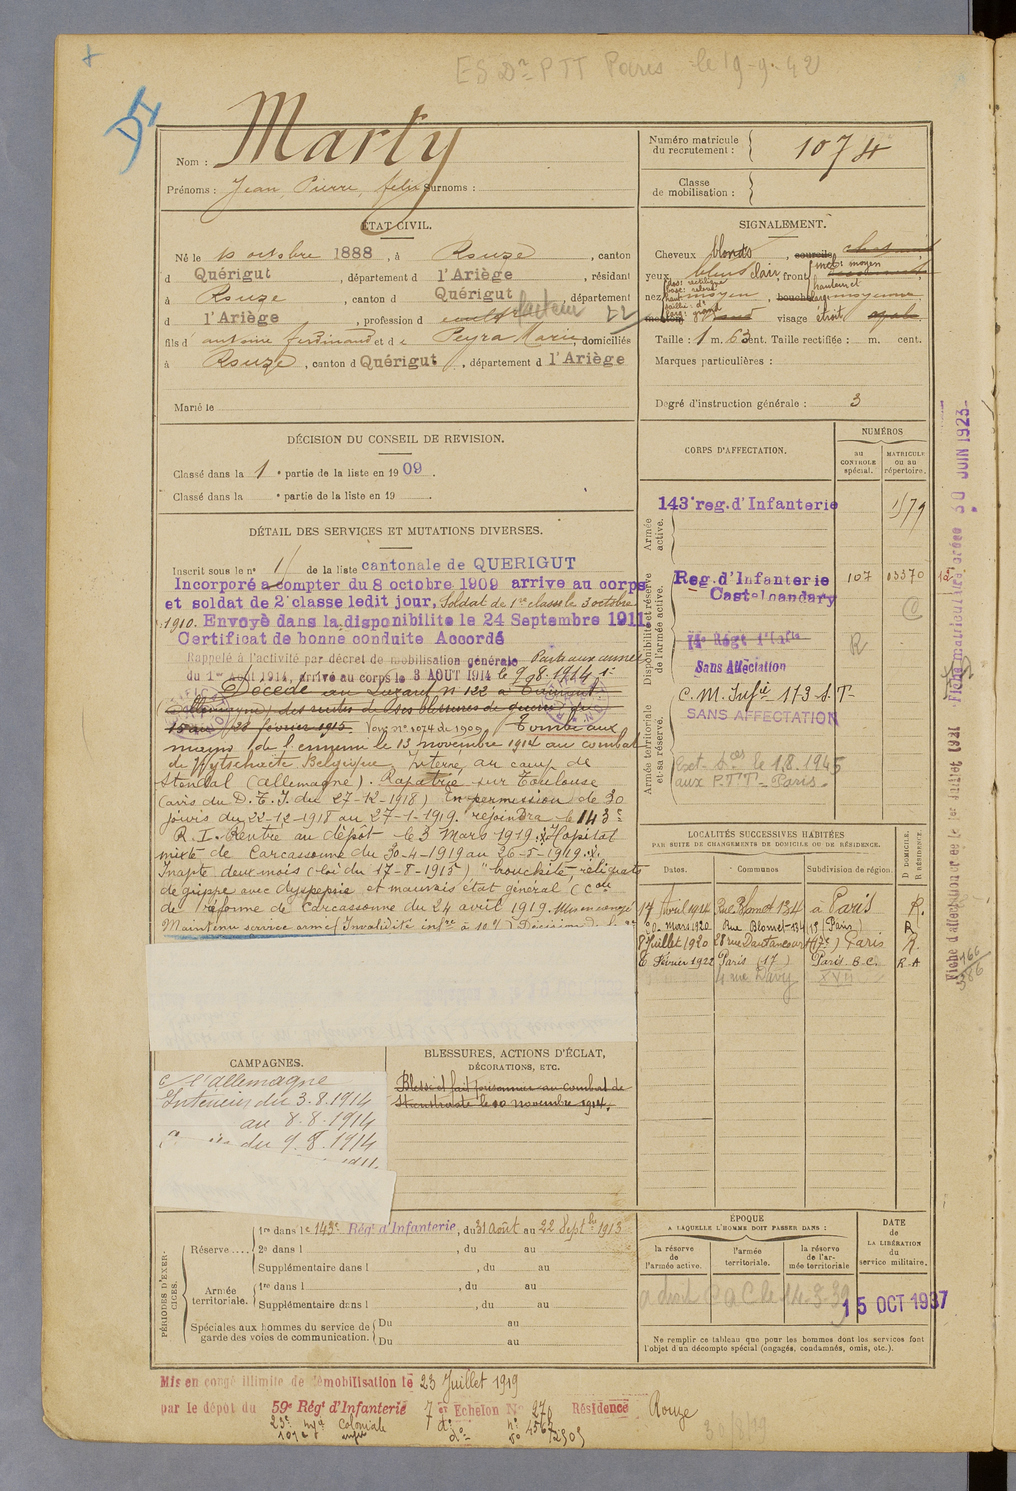 ES Dn PTT Paris le 19-9-42
DI
Nom : Marty
Prénoms : Jean Pierre, felix Surnoms :
Numéro matricule du recrutement : 1074
Classe de mobilisation :
ÉTAT CIVIL.
Né le 10 octobre 1888, à Rouze, canton
d Quérigut, département d l'Ariège, résidant
à Rouze, canton d Quérigut, département
d l'Ariège, profession d facteur 22
fils d antoine ferdinand et d e Peyra Marie, domiciliés
à Rouze, canton d Quérigut, département d l'Ariège
Marié le
SIGNALEMENT.
Cheveux blonds, sourcils
yeux bleus clair, front inclon moyen
nez moyen, bouche moyenne
menton visage étroit ovale
Taille : 1 m. 63 cent. Taille rectifiée : m. cent.
Marques particulières :
Degré d'instruction générale : 3
DÉCISION DU CONSEIL DE REVISION.
Classé dans la 1e partie de la liste en 1909.
Classé dans la e partie de la liste en 19
DÉTAIL DES SERVICES ET MUTATIONS DIVERSES.
Inscrit sous le n° 11 de la liste cantonale de QUERIGUT
Incorporé a compter du 8 octobre 1909 arrive au corps
et soldat de 2e classe ledit jour, Soldat de 1re classe le 3 octobre
1910. Envoyé dans la disponibilite le 24 Septembre 1911.
Certificat de bonne conduite Accordé
Rappelé à l'activité par décret de mobilisation générale Parti aux armées
du 1er Août 1914, arrivé au corps le 3 AOUT 1914 le 9.8.1914
Décédé au Lazaret n° 122 à
(Allemagne) des suites de ses blessures de guerre
28 février 1915. Voir n° 1074 de 1909 Tombé aux
mains de l'ennemi le 13 novembre 1914 au combat
de Wytschaete Belgique, Interné au camp de
Stendal (Allemagne). Rapatrié sur Toulouse
(avis du D.E.I. du 27-12-1918) En permission de 30
jours du 22-12-1918 au 27-1-1919. rejoindra le 143e
R.I. Rentré au dépôt le 3 Mars 1919. Hopital
mixte de Carcassonne du 30-4-1919 au 26-5-1919.
Inapte deux mois (loi du 17-8-1915) "bronchite, reliquats
de grippe avec dyspepsie et mauvais état général (Con
de réforme de Carcassonne du 24 avril 1919. Mis en congé
Maintenu service armé Invalidité infre à 10% Décision
CORPS D'AFFECTATION.
NUMÉROS
AU CONTROLE spécial.
MATRICULE ou au répertoire.
Armée active.
143e reg. d'Infanterie 1179
Disponibilité et réserve de l'armée active.
Reg. d'Infanterie 107 03370
Castelnaudary
Sans Affectation
R
C.M. Infie 173 S.T-
SANS AFFECTATION
Armée territoriale et sa réserve.
le 1.8.1945
aux P.T.T- Paris.
LOCALITÉS SUCCESSIVES HABITÉES
PAR SUITE DE CHANGEMENTS DE DOMICILE OU DE RÉSIDENCE.
Dates. Communes Subdivision de région. D DOMICILE. R RÉSIDENCE.
17 Avril 1914 Rue Blomet 134 à Paris R.
20 mars 1920 Rue Blomet-134 15 (Paris) R
8 Juillet 1920 28 rue Dautancourt (17e) Paris R.
6 Février 1922 Paris (17) Paris B.C. R A
4 rue Davy XVII
CAMPAGNES.
C/ l'allemagne
Intérieur du 3.8.1914
au 8.8.1914
du 9.8.1914
BLESSURES, ACTIONS D'ÉCLAT,
DÉCORATIONS, ETC.
Blessé et fait prisonnier au combat de
le 10 novembre 1914.
PÉRIODES D'EXERCICES.
Réserve....
1re dans le 143e Régt d'Infanterie, du 31 Août au 22 Septbre 1913
2e dans l , du au
Supplémentaire dans l , du au
Armée territoriale.
1re dans l , du au
Supplémentaire dans l , du au
Spéciales aux hommes du service de garde des voies de communication.
Du au
Du au
ÉPOQUE
A LAQUELLE L'HOMME DOIT PASSER DANS :
la réserve de l'armée active.
l'armée territoriale.
la réserve de l'armée territoriale
DATE de LA LIBÉRATION du service militaire.
a droit C a C le 14-3-39
15 OCT 1937
Ne remplir ce tableau que pour les hommes dont les services font l'objet d'un décompte spécial (engagés, condamnés, omis, etc.).
Mis en congé illimité de démobilisation le 23 Juillet 1919
par le dépôt du 59e Régt d'Infanterie 7 er Echelon N° 270 Résidence Rouze
23e Coloniale 7 do n° 4567
Fiche matriculaire créée 30 JUIN 1923
Fiche d'affectation créée le 1er Juillet 1921